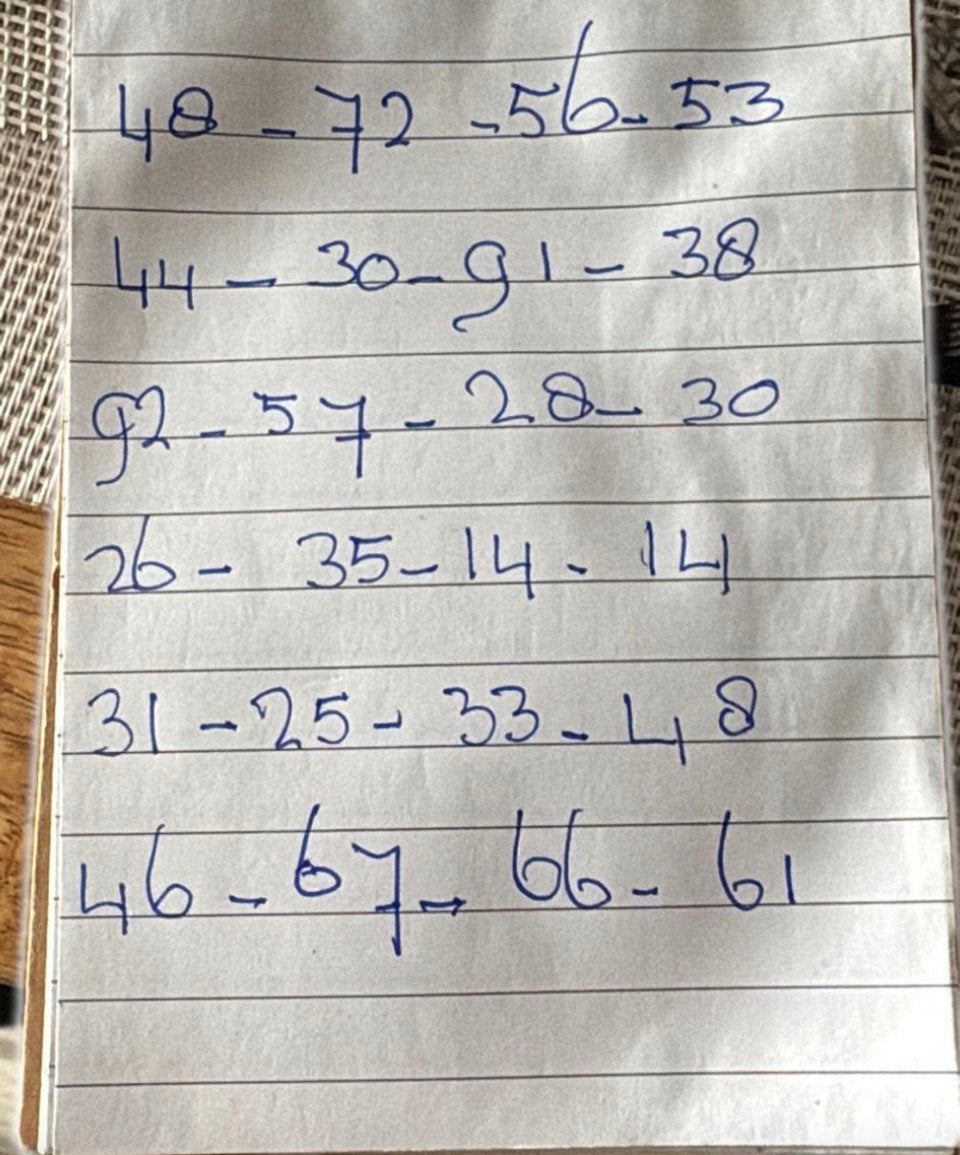 48 - 72 - 56 - 53
44 - 30 - 91 - 38
92 - 57 - 28 - 30
26 - 35 - 14 - 14
31 - 25 - 33 - 48
46 - 67 - 66 - 61